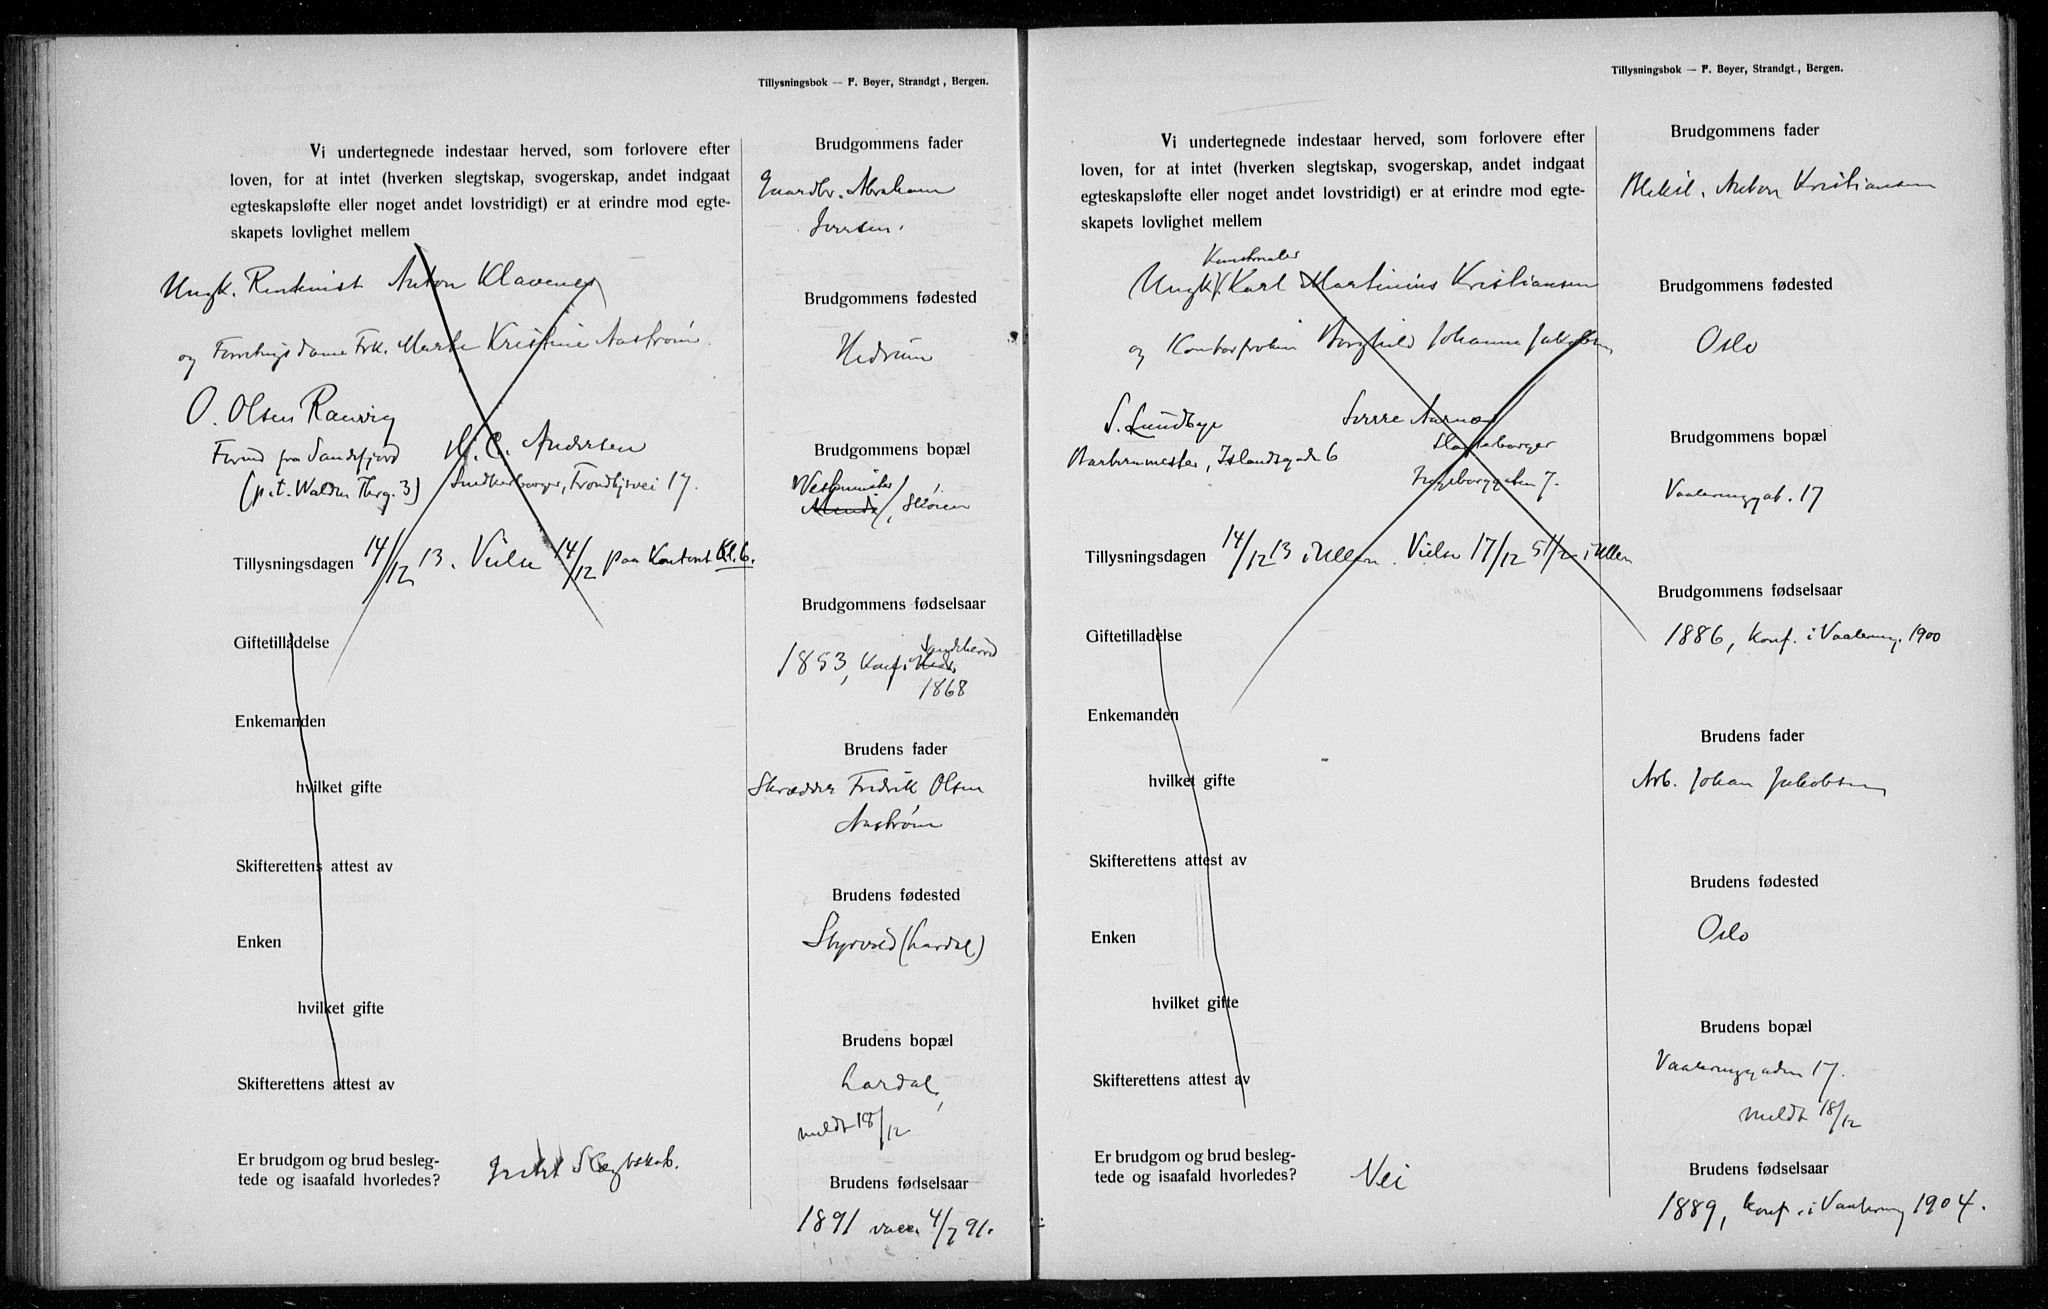 Tillysningsbok — F. Beyer, Strandgt., Bergen.
Vi undertegnede indestaar herved, som forlovere efter
loven, for at intet (hverken slegtskap, svogerskap, andet indgaat
egteskapsløfte eller noget andet lovstridigt) er at erindre mod egte-
skapets lovlighet mellem
Ungk. Rentenist Anton Klavenes
og Forretningsdame Frk. Marte Kristine Aastrøm.
O. Olsen Ranvig
Forud fra Sandefjord
(p.t. Walden Therg. 3)
H. C. Andersen
Snedkerborger, Trondhjsvei 17.
Tillysningsdagen 14/12 13. Vielse 14/12 paa Kontoret Kl. 6.
Giftetilladelse
Enkemanden
hvilket gifte
Skifterettens attest av
Enken
hvilket gifte
Skifterettens attest av
Er brudgom og brud besleg-
tede og isaafald hvorledes? Intet Slegtskab.
Brudgommens fader
Gaardbr. Abraham
Iversen.
Brudgommens fødested
Hedrum
Brudgommens bopæl
Westminster
Skøien
Brudgommens fødselsaar
Sandeherred
1853, Konf. i
1868
Brudens fader
Skrædder Fredrik Olsen
Aastrøm
Brudens fødested
Styrvold (Lardal)
Brudens bopæl
Lardal,
meldt 18/12
Brudens fødselsaar
1891 vacc. 4/7 91.
Tillysningsbok — F. Beyer, Strandgt., Bergen.
Vi undertegnede indestaar herved, som forlovere efter
loven, for at intet (hverken slegtskap, svogerskap, andet indgaat
egteskapsløfte eller noget andet lovstridigt) er at erindre mod egte-
skapets lovlighet mellem
Kunstmaler
Ungk. Karl Martinius Kristiansen
og Kontorfrøken Borghild Johanne Jakobsen
S. Lundbye
Barbermester, Islandsgade 6
Sverre Aarnæs
Ingeborggaten 7.
Tillysningsdagen 14/12 13 i Ullern. Vielse 17/12 5 1/2 i Ullern
Giftetilladelse
Enkemanden
hvilket gifte
Skifterettens attest av
Enken
hvilket gifte
Skifterettens attest av
Er brudgom og brud besleg-
tede og isaafald hvorledes? Nei
Brudgommens fader
Bleksl. Anton Kristiansen
Brudgommens fødested
Oslo
Brudgommens bopæl
Vaalerenggat. 17
Brudgommens fødselsaar
1886, Konf. i Vaalereng, 1900
Brudens fader
Arb. Johan Jakobsen
Brudens fødested
Oslo
Brudens bopæl
Vaalerenggaden 17.
meldt 18/12
Brudens fødselsaar
1889, Konf. i Vaalereng 1904.